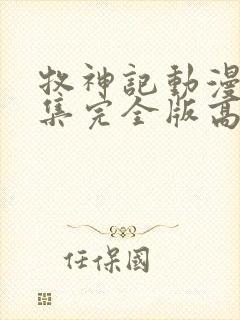 牧神記動漫
集完全版高
任保國